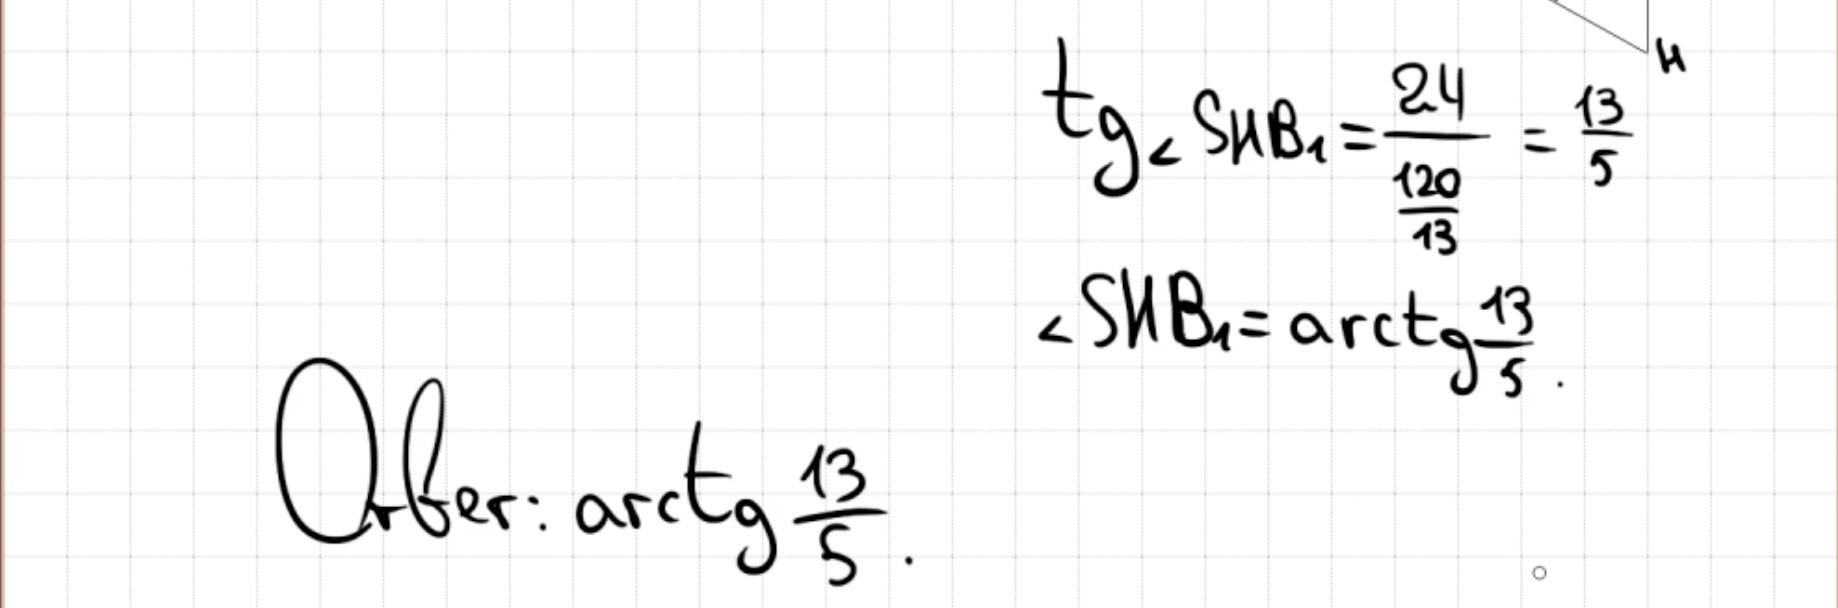 H
tg∠SHB₁ = 24/(120/13) = 13/5
∠SHB₁ = arctg 13/5.
Ответ: arctg 13/5.